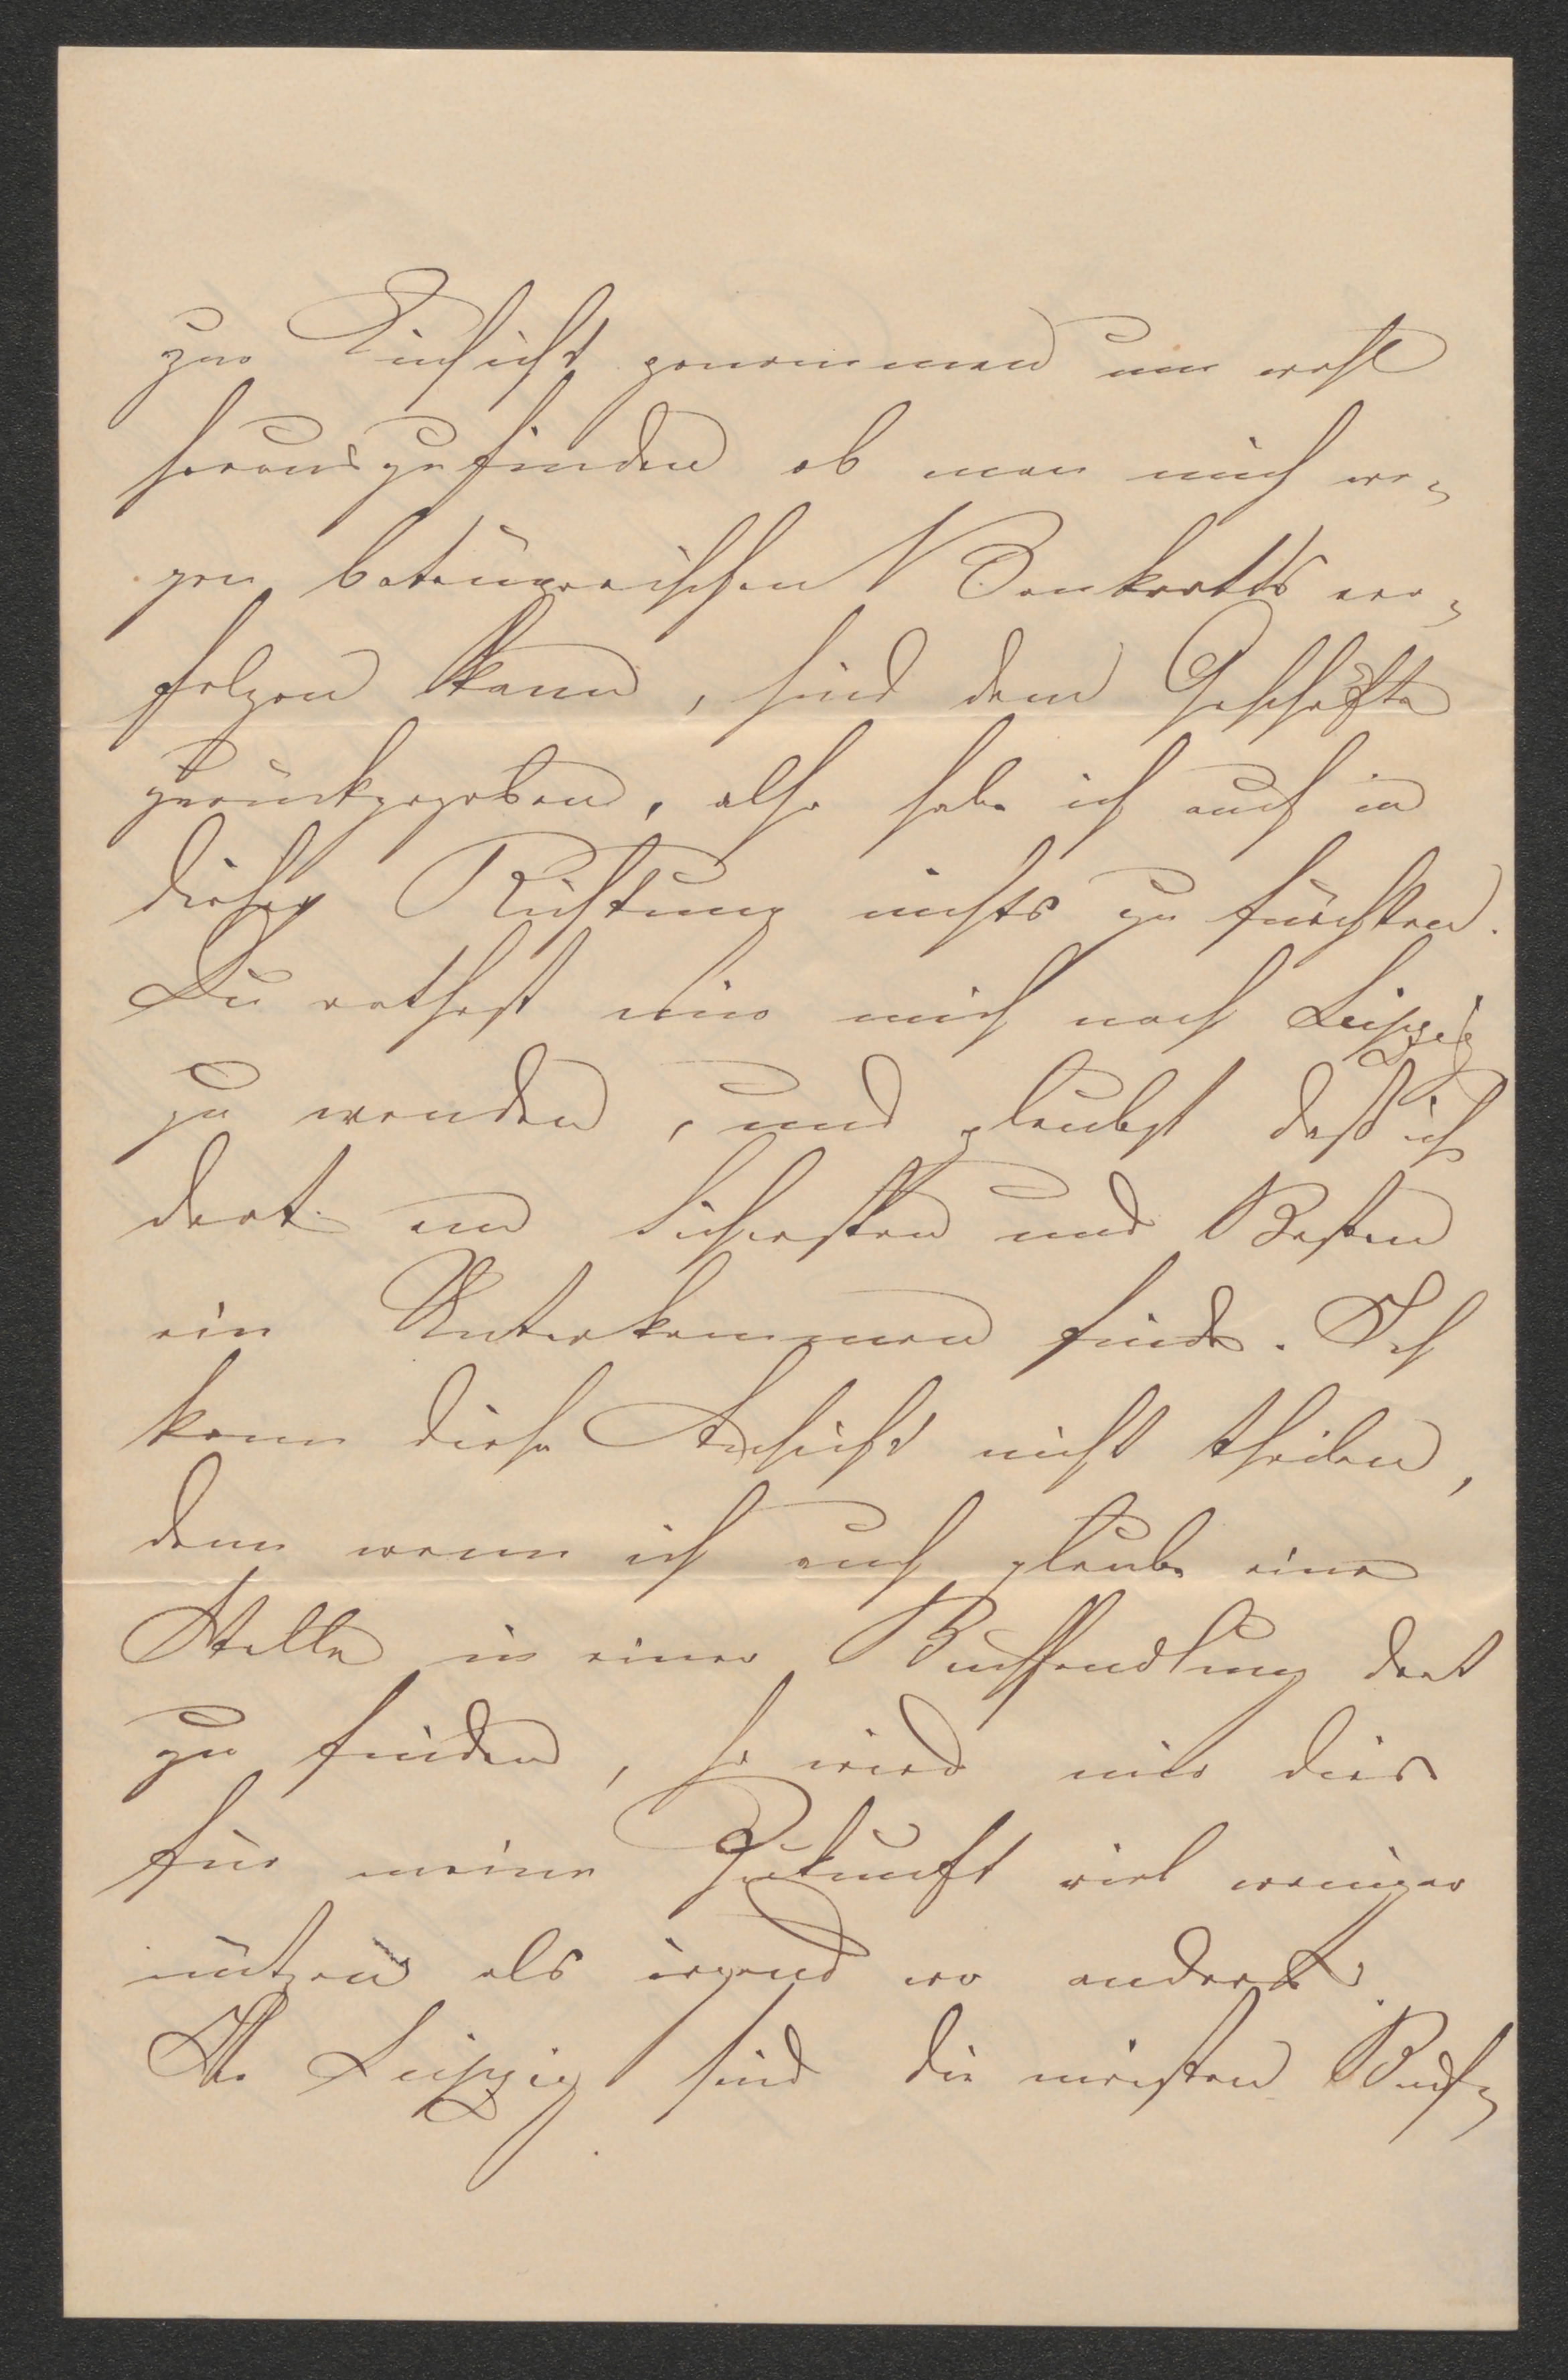 zur Einsicht genommen um wohl
herauszufinden ob man mich we-
gen betrügerischen Bankrotts ver-
folgen kann, sind dem Geschäfte
zurückgegeben, also habe ich auch in
dieser Richtung nichts zu fürchten.
Du rathest mir mich nach Leipzig
zu wenden, und glaubst daß ich
dort am Sichersten und Besten
ein Unterkommen finde. Ich
kann diese Ansicht nicht theilen,
denn wenn ich auch glaube eine
Stelle in einer Buchhandlung dort
zu finden, so wird mir dies
für meine Zukunft viel weniger
nützen als irgend wo anders.
In Leipzig sind die meisten Buch-